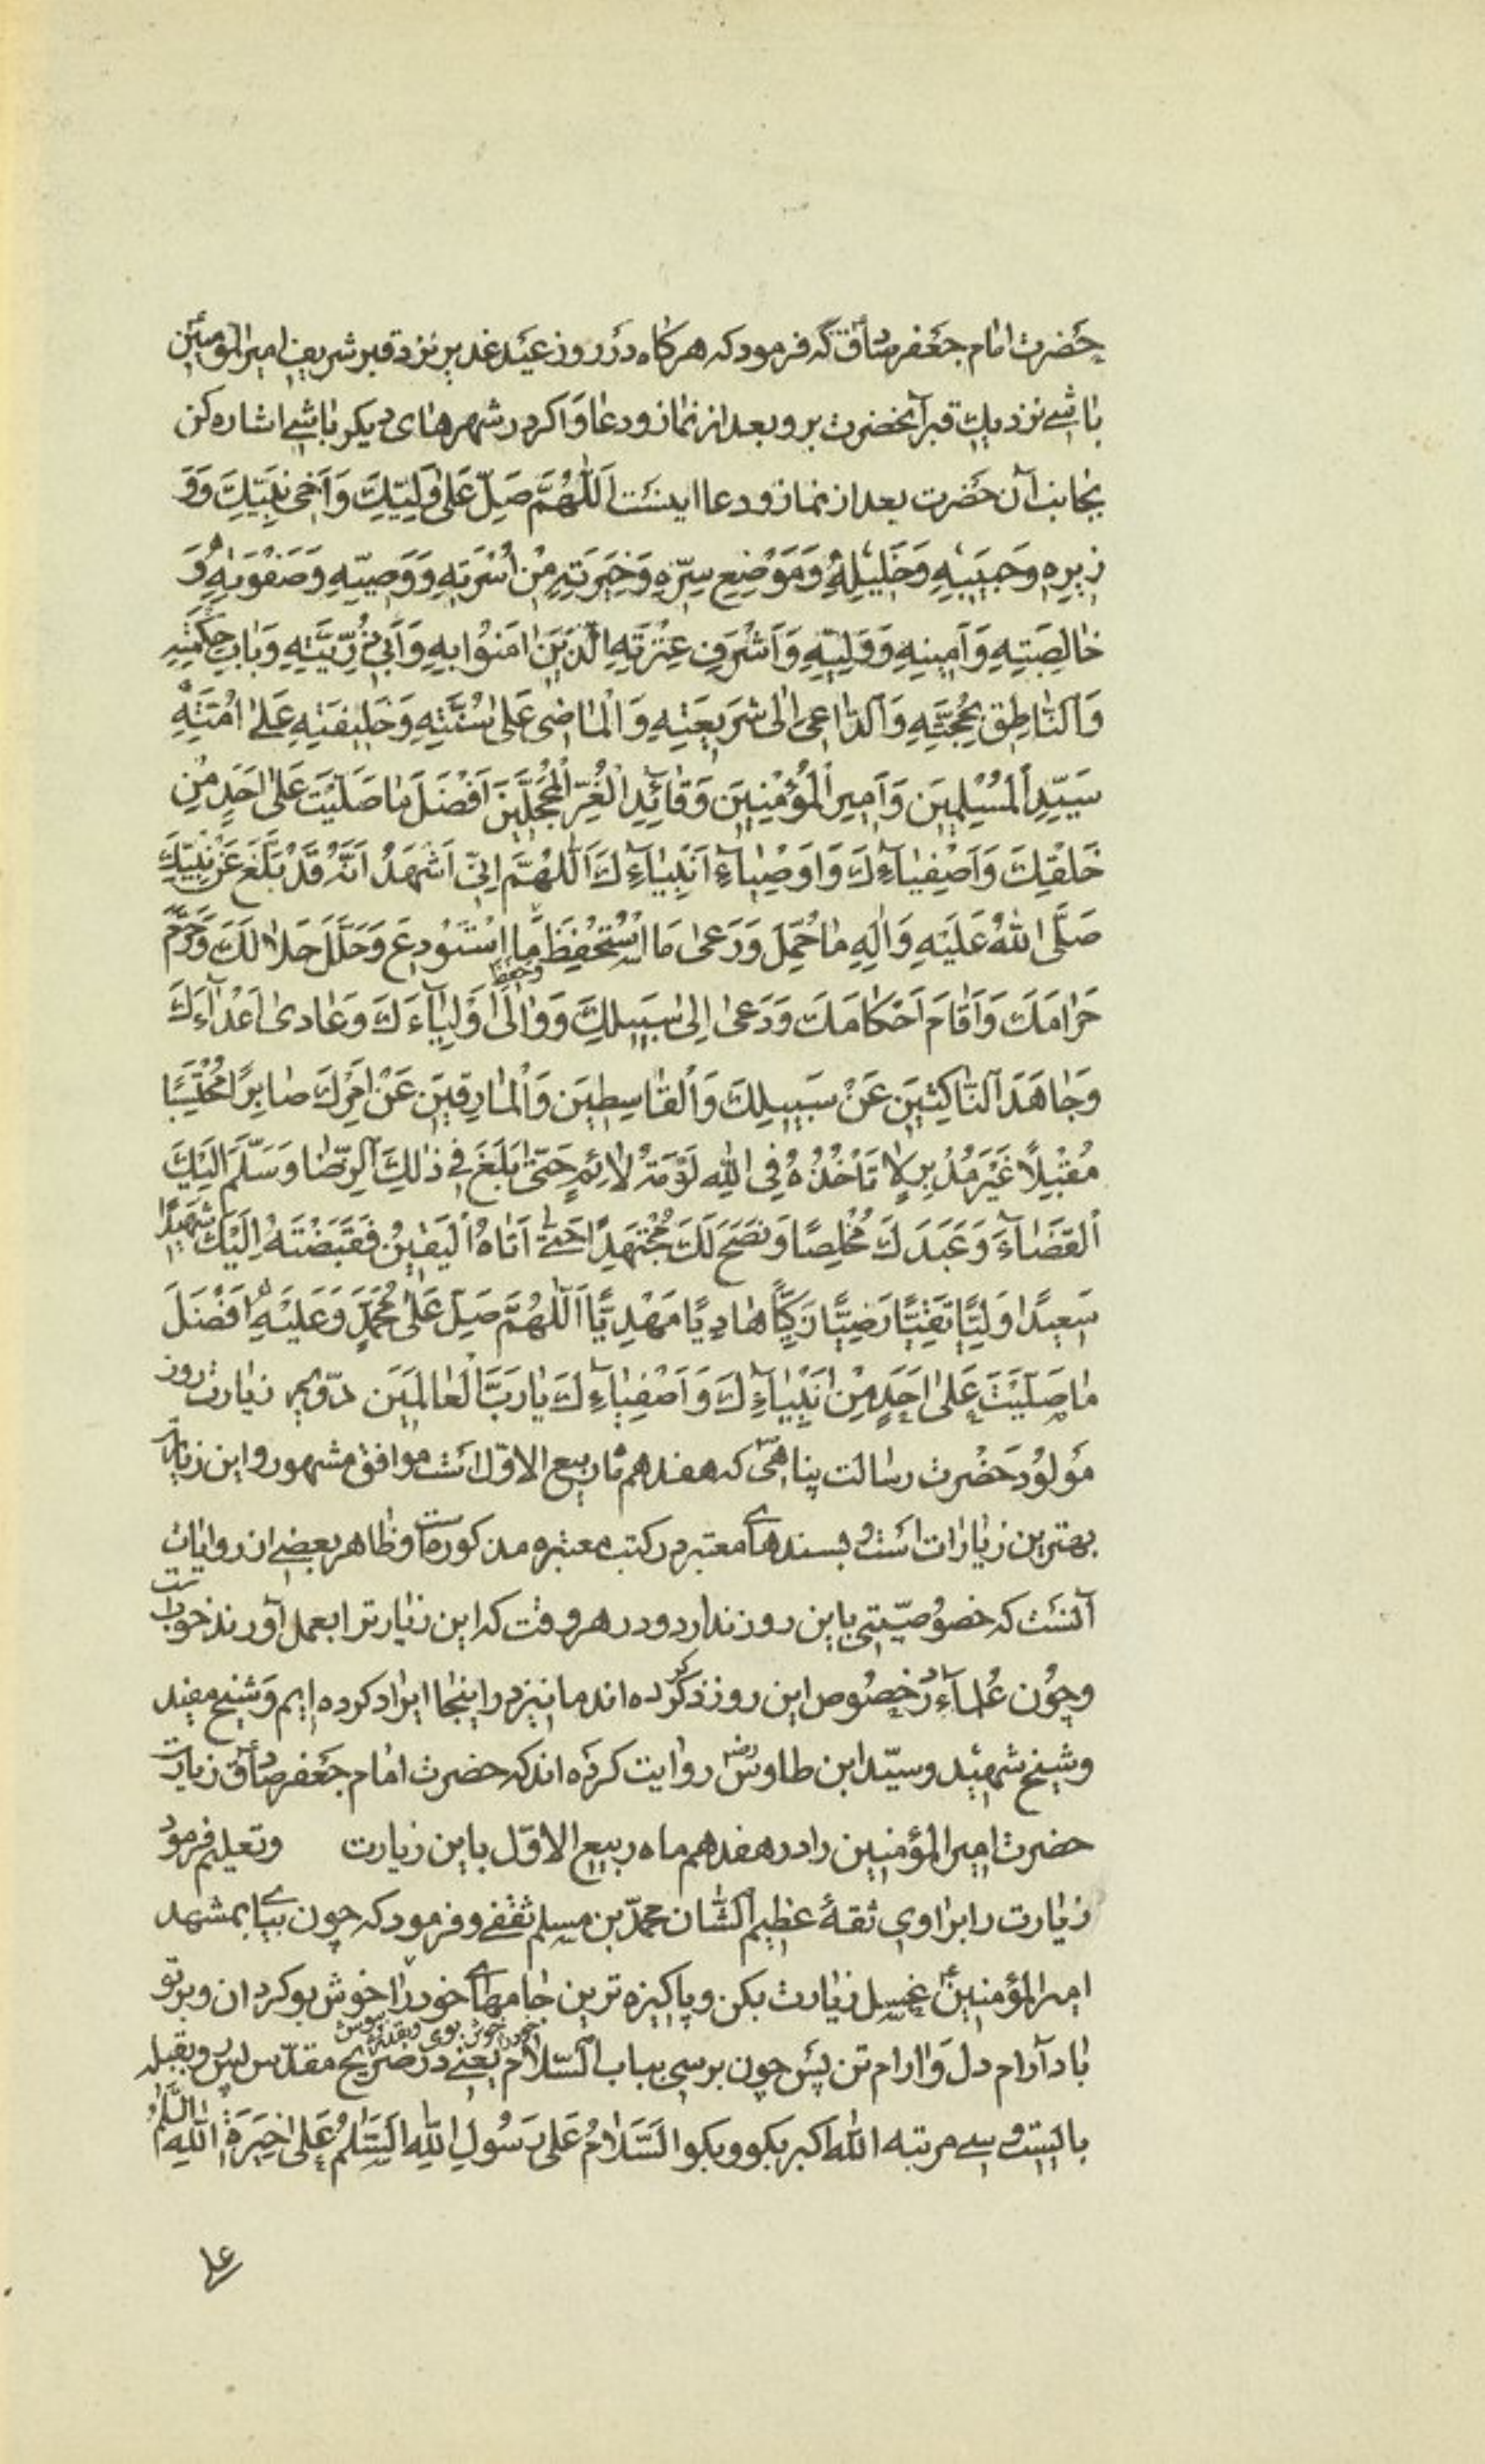 حَضرت امام جَعفر صادق ع که فرمود که هرکاه دَر روز عیَد غدیر نزد قبر شریف امیر المؤمنین
باشے نزدیك قبر آنحضرت برو بعد از نماز و دعا وَاکر در شهرهای دیکر باشے اشاره کن
بجانب آن حَضرت بعد از نماز و دعا اینسَت اَللّٰهُمَّ صَلِّ عَلٰی وَلِیِّكَ وَاَخی نَبِیِّكَ وَوَ
زیرِهِ وَحَبیبِهِ وَخَلیلِهِ وَمَوْضِعِ سِرِّهِ وَخِیَرَتِهِ مِنْ اُسْرَتِهِ وَوَصِیِّهِ وَصَفْوَتِهِ وَ
خالِصَتِهِ وَاَمینِهِ وَوَلِیِّهِ وَاَشْرَفِ عِتْرَتِهِ الَّذینَ اٰمَنُوْا بِهِ وَاَبی ذُرِّیَّتِهِ وَبابِ حِکْمَتِهِ
وَالنّاطِقِ بِحُجَّتِهِ وَالدّاعی اِلٰی شَریعَتِهِ وَالْماضی عَلٰی سُنَّتِهِ وَخَلیفَتِهِ عَلٰے اُمَّتِهِ
سَیِّدِ الْمُسْلِمینَ وَاَمیرِ الْمُؤْمِنینَ وَقائِدِ الْغُرِّ الْمُحَجَّلینَ اَفْضَلَ ما صَلَّیْتَ عَلٰی اَحَدٍ مِنْ
خَلْقِكَ وَاَصْفِیآءِكَ وَاَوْصِیآءِ اَنْبِیآءِكَ اَللّٰهُمَّ اِنّی اَشْهَدُ اَنَّهُ قَدْ بَلَّغَ عَنْ نَبِیِّكَ
صَلَّی اللهُ عَلَیْهِ وَاٰلِهِ ما حُمِّلَ وَرَعٰی مَا اسْتُحْفِظَ وَحَفِظَ مَا اسْتُوْدِعَ وَحَلَّلَ حَلالَكَ وَحَرَّمَ
حَرامَكَ وَاَقامَ اَحْکامَكَ وَدَعٰی اِلٰی سَبیلِكَ وَوٰالٰی اَوْلِیآءَكَ وَعادٰی اَعْدآءَكَ
وَجاهَدَ النّاکِثینَ عَنْ سَبیلِكَ وَالْقاسِطینَ وَالْمارِقینَ عَنْ اَمْرِكَ صابِرًا مُحْتَسِبًا
مُقْبِلًا غَیْرَ مُدْبِرٍ لا تَأخُذُهُ فِی اللهِ لَوْمَةُ لائِمٍ حَتّٰی بَلَغَ فی ذٰلِكَ الرِّضا وَسَلَّمَ اِلَیْكَ
الْقَضآءَ وَعَبَدَكَ مُخْلِصًا وَنَصَحَ لَكَ مُجْتَهِدًا حَتّٰے اَتاهُ الْیَقینُ فَقَبَضْتَهُ اِلَیْكَ شَهیدًا
سَعیدًا وَلِیًّا تَقِیًّا رَضِیًّا زَکِیًّا هادِیًا مَهْدِیًّا اَللّٰهُمَّ صَلِّ عَلٰی مُحَمَّدٍ وَعَلَیْهِ اَفْضَلَ
ما صَلَّیْتَ عَلٰی اَحَدٍ مِنْ اَنْبِیآءِكَ وَاَصْفِیآءِكَ یا رَبَّ الْعالَمینَ دوّیم زیارت روز
مَولوُد حَضْرت رسالت پناهی که هفدهم ماه ربیع الاوّل اسَت موافق مشهور و این زیارت
بهترین زیارات اسَت و بسندهای معتبر در کتب معتبره مذکورست و ظاهر بعضے از روایات
آنسَت که خصوُصیّتی باین روز ندارد و در هر وقت که این زیارترا بعمل آورند خوبست
وچوُن عُلمآء در خصوُص این روز ذکر کرده اند ما نیز در اینجا ایراد کرده ایم وَشیخ مفید
وشیخ شهید وسیّد ابن طاوس رض روایت کرده اند که حضرت امام جَعفر صادق ع زیارت
حضرت امیر المؤمنین را در هفدهم ماه ربیع الاوّل باین زیارت وتعلیم فرمود
زیارت را براوی ثقۀ عظیم الشّان محمّد بن مسلم ثقفے وفرمود که چون بیائے بمشهد
امیر المؤمنین ع غسل زیارت بکن وپاکیزه ترین جامهای خود را بپوش و خود را خوش بو کردان وبر تو
باد آرام دل وَارام تن پسَ چون برسی بباب السّلام یعنے در ضریح مقدّس پس رو بقبله
بایست و سے مرتبه الله اکبر بکو وبکو اَلسَّلامُ عَلٰی رَسُولِ اللهِ اَلسَّلامُ عَلٰی خِیَرَةِ اللهِ اَلسَّلامُ